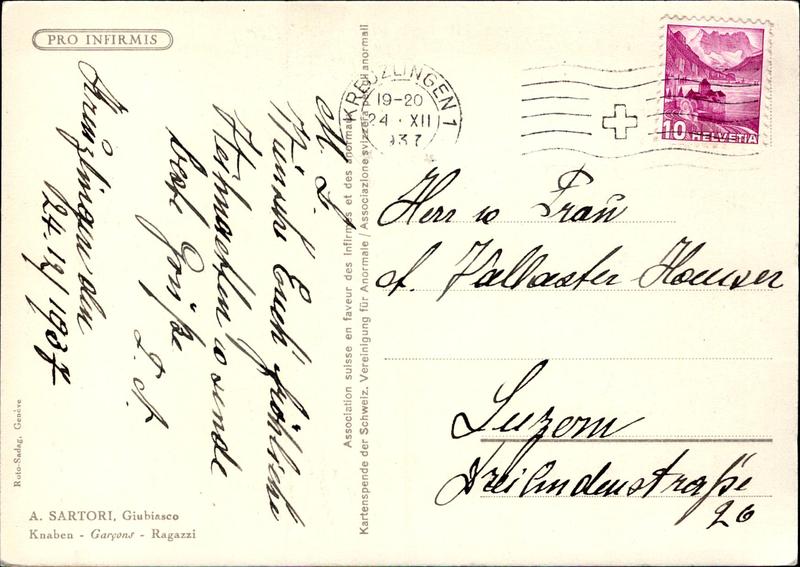 PRO INFIRMIS
Kreuzlingen den
24. 12/1937
M. L.
Wünsche Euch fröhliche
Weihnachten u sende
beste Grüße
Association suisse en faveur des Infirmes et des anormaux / Associazione svizzera pro anormali
Kartenspende der Schweiz. Vereinigung für Anormale
KREUZLINGEN 1
19-20
24. XII
1937
10 HELVETIA
Herr u Frau
Hauser
Luzern
Dreilindenstraße
26
Roto-Sadag, Genève
A. SARTORI, Giubiasco
Knaben - Garçons - Ragazzi